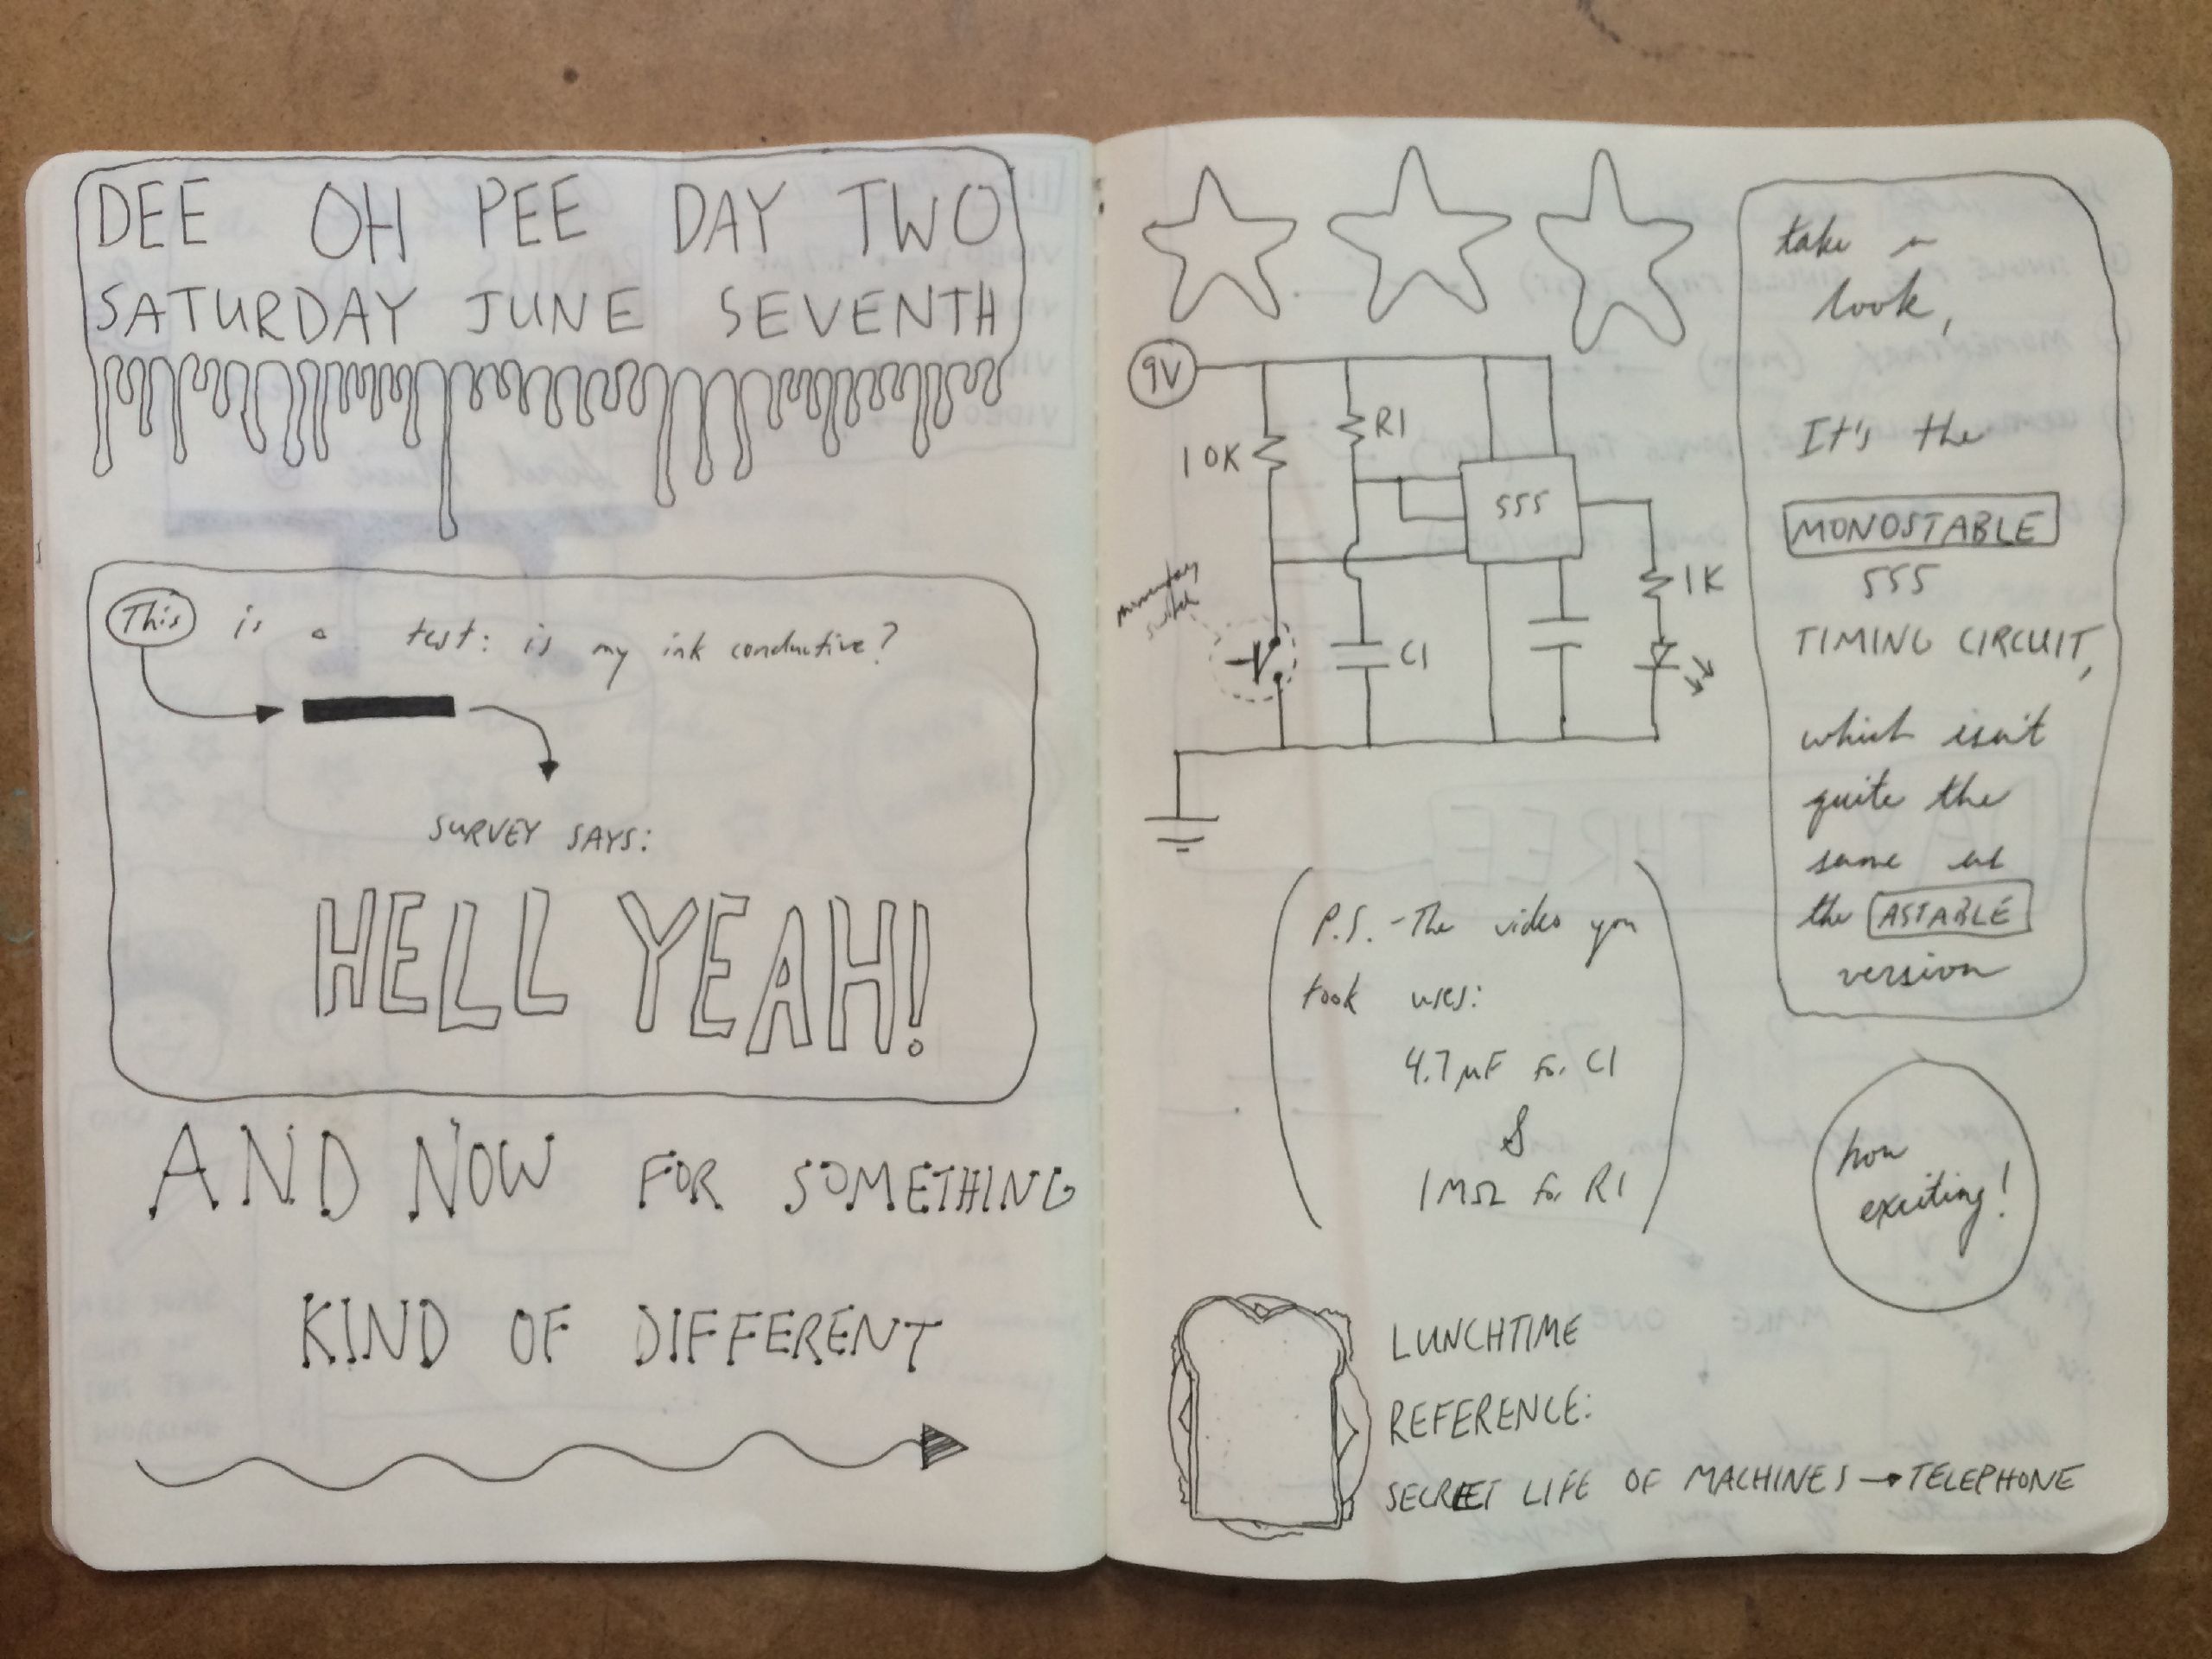 DEE OH PEE DAY TWO
SATURDAY JUNE SEVENTH
This is a test: is my ink conductive?
SURVEY SAYS:
HELL YEAH!
AND NOW FOR SOMETHING
KIND OF DIFFERENT
9V
10K
R1
555
momentary
switch
C1
1K
take a
look,
It's the
MONOSTABLE
555
TIMING CIRCUIT,
which isn't
quite the
same as
the ASTABLE
version
(P.S. - The video you
took uses:
4.7µF for C1
&
1MΩ for R1)
how
exciting!
LUNCHTIME
REFERENCE:
SECRET LIFE OF MACHINES → TELEPHONE